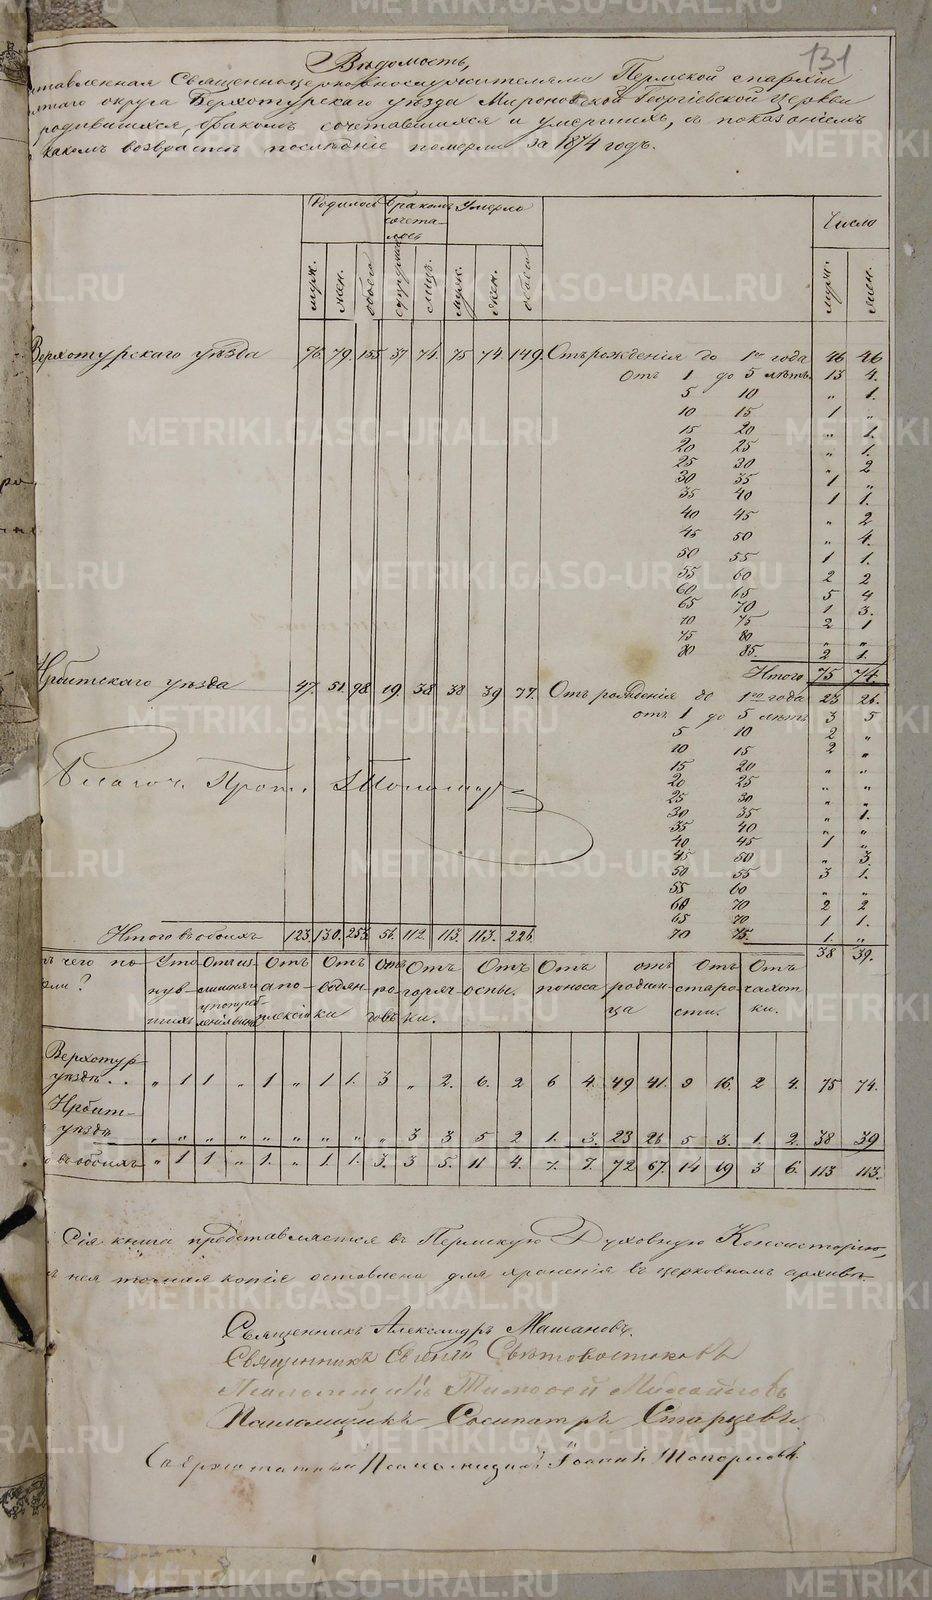 131
Вѣдомость,
ставленная Священноцерковнослужителями Пермской епархіи
округа Верхотурскаго уѣзда Мироновской Георгіевской церкви
родившихся, бракомъ сочетавшихся и умершихъ, съ показаніемъ
какомъ возврастѣ послѣдніе померли за 1874 годъ.
Родилось Бракомъ сочета-лось Умерло Число
муж. жен. обоего супруж. лицъ. муж. жен. обоего муж. жен.
Верхотурскаго уѣзда 76. 79. 155 37 74. 75 74. 149. Отъ рожденія до 1го года 46 46
Отъ 1 до 5 лѣтъ. 13 4.
5 10 „ 1.
10 15 1 „
15 20 „ 1.
20 25 „ 1.
25 30 „ 2
30 35 1 „
35 40 1 1.
40 45 „ 2
45 50 „ 4.
50 55 1 1.
55 60 2 2
60 65 5 4
65 70 1 3.
70 75 2 1
75 80 „ „
80 85. 2 1.
Итого 75 74.
Ирбитскаго уѣзда 47. 51. 98. 19. 38 38 39 77. Отъ рожденія до 1го года 23 26.
отъ 1 до 5 лѣтъ 3 5
5 10 2 „
10 15 2 „
15 20 „ „
20 25 „ „
25 30 „ „
30 35 „ 1.
35 40 „ „
40 45 1 „
45 50 „ 3
50 55 3 1.
55 60 „ „
60 70 2 2
65 70 1 1.
70 75. 1. „
38 39.
Благоч. Прот.
Итого въ обоихъ 123. 130. 253. 56. 112. 113. 113. 226.
чего по- Уто- Отъ из- Отъ Отъ Отъ Отъ Отъ Отъ отъ Отъ Отъ
ли? нув- лишняго апо- водян- ро- горяч- оспы. поноса родим- старо- чахот-
шихъ употреб- плексіи ки довъ ки. ца сти. ки.
ленія вина
Верхотур
уѣздѣ.. „ 1 1 „ 1 „ 1 1. 3 „ 2. 6. 2 6 4. 49 41. 9 16. 2 4. 75 74.
Ирбит-
уѣздѣ „ „ „ „ „ „ „ „ „ 3 3 5 2 1. 3. 23 26 5 3. 1. 2. 38 39
въ обоихъ „ 1 1 „ 1. „ 1. 1. 3. 3 5. 11 4. 7. 7. 72 67. 14 19 3 6. 113 113.
Сія книга представляется въ Пермскую Духовную Консисторію,
нея точная копія оставлена для храненія въ церковномъ архивѣ.
Священникъ Александръ Машановъ.
Священникъ Евгеній Свѣтовостоковъ
Псаломщикъ Тимофей
Псаломщикъ Сосипатръ Старцевъ.
Сверхштатный Псаломщикъ Іоаннъ Топорковъ.
METRIKI.GASO-URAL.RU